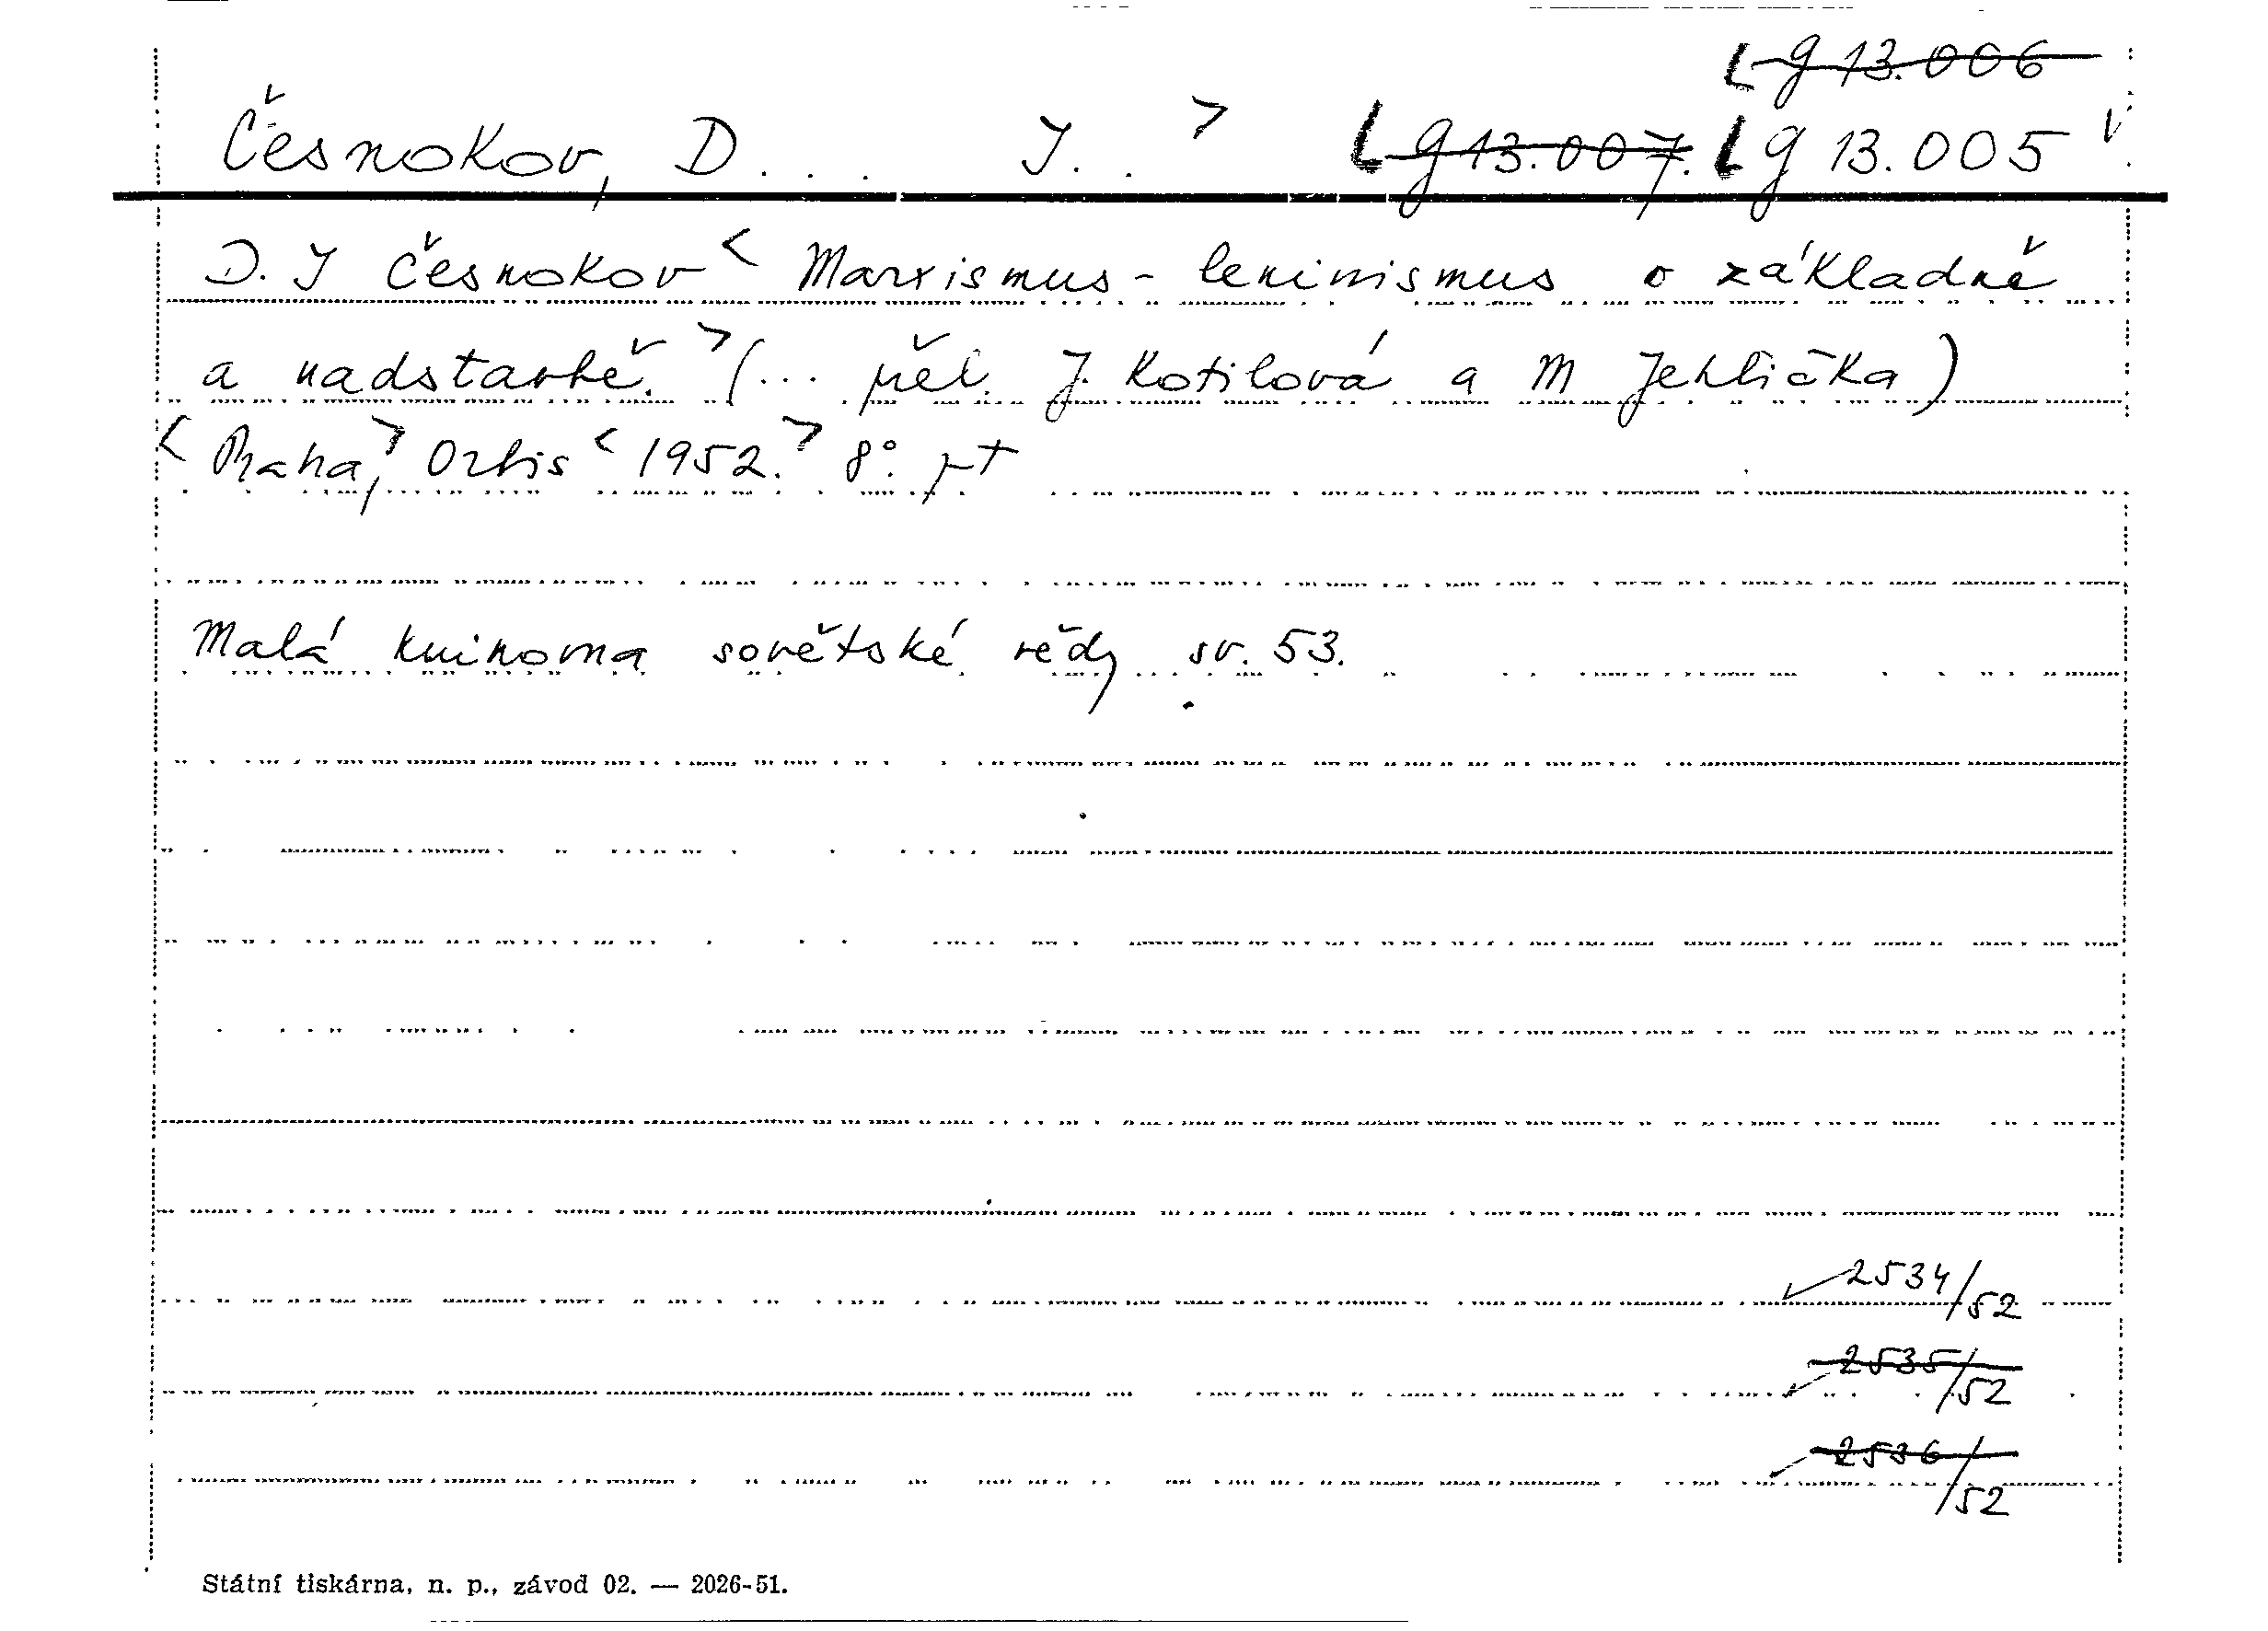 L g 13.006
Česnokov, D... J.. > L g 13.007. L g 13.005
D. J Česnokov < Marxismus - leninismus o základně
a nadstavbě. > (... přel. J. Kotilová a M Jehlička)
< Praha, > Orbis < 1952. > 8°.
Malá knihovna sovětské vědy sv. 53.
2534/52
2535/52
2536/52
Státní tiskárna, n. p., závod 02. — 2026-51.